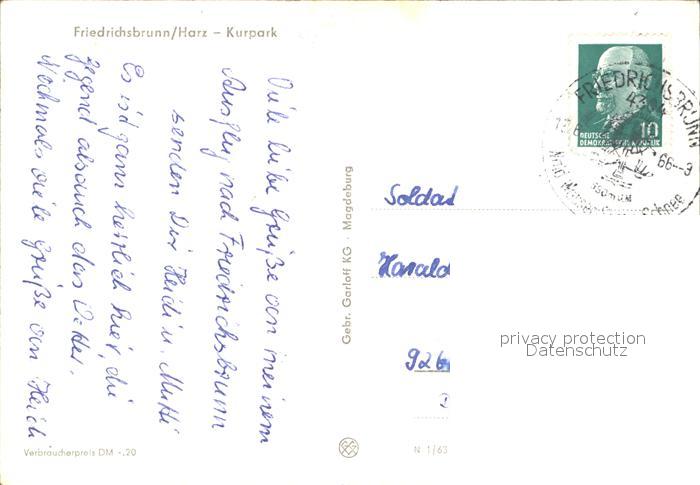 Friedrichsbrunn/Harz – Kurpark
Viele liebe Grüße von meinem
Ausflug nach Friedrichsbrunn
senden Dir Heidi u. Mutti
Es ist ganz herrlich hier, die
Gegend als auch das Wetter.
Nochmals viele Grüße von Heidi
Verbraucherpreis DM -.20
Gebr. Garloff KG · Magdeburg
N 1/63
DEUTSCHE
DEMOKRATISCHE REPUBLIK
10
FRIEDRICHSBRUNN
66-9
Soldat
Harald
926
privacy protection
Datenschutz